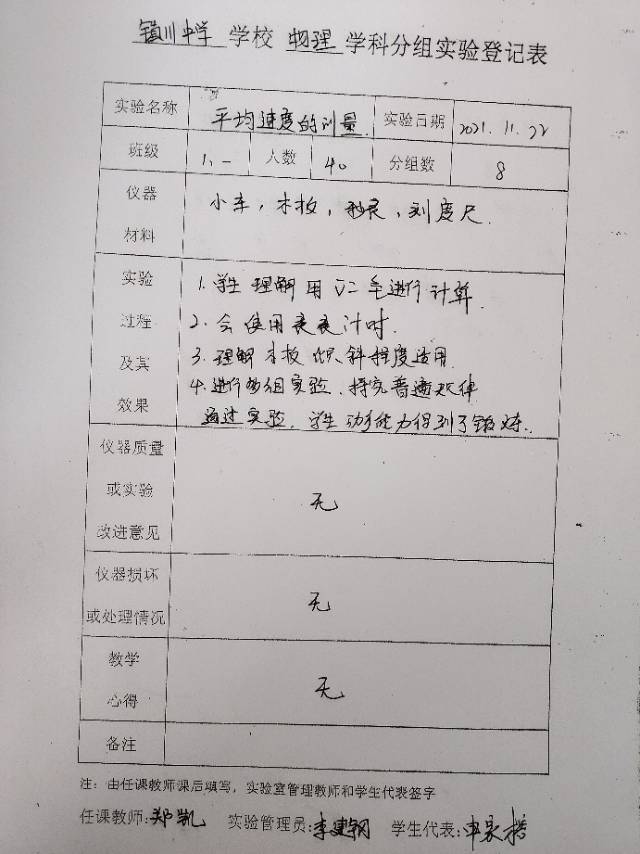 镇川中学 学校 物理 学科分组实验登记表
实验名称 平均速度的测量 实验日期 2021.11.22
班级 人数 40 分组数 8
仪器材料 小车,木板,秒表,刻度尺.
实验过程及其效果
1.学生理解用 进行计算.
2.会使用表计时.
3.理解木板 斜程度适用
4.进行 组实验.探究普遍规律
通过实验,学生动手能力得到了锻炼.
仪器质量或实验改进意见 无
仪器损坏或处理情况 无
教学心得 无
备注
注:由任课教师课后填写,实验室管理教师和学生代表签字
任课教师:郑凯 实验管理员:李建钢 学生代表: